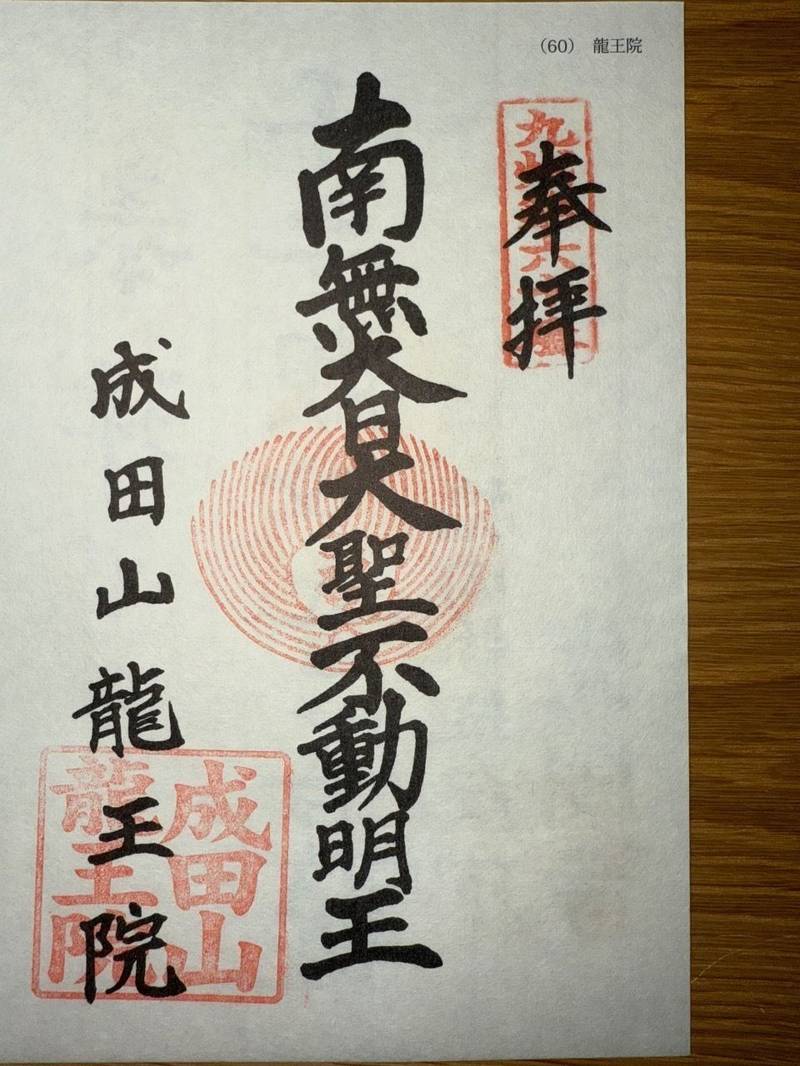 （60） 龍王院
奉拝
南無大日大聖不動明王
成田山龍王院
成田山
龍王院